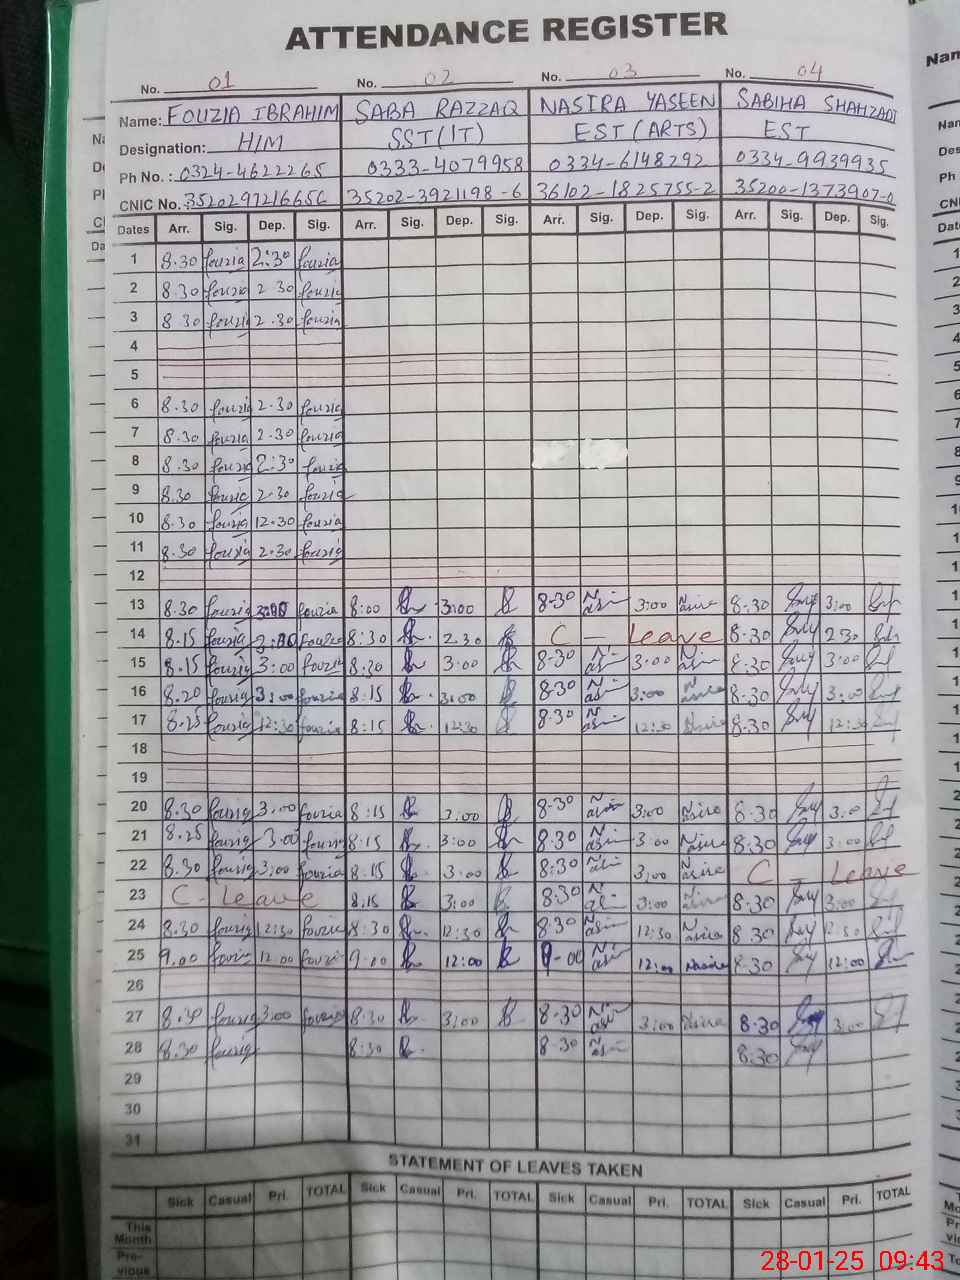 ATTENDANCE REGISTER
No. 01 No. 02 No. 03 No. 04
Name: FOUZIA IBRAHIM SABA RAZZAQ NASIRA YASEEN SABIHA SHAHZADI
Designation: H/M SST(IT) EST (ARTS) EST
Ph No. : 0324-4622265 0333-4079958 0334-6148292 0334-9939935
CNIC No. 35202-3921198-6 36102-1825755-2 35200-1373907-0
Dates Arr. Sig. Dep. Sig. Arr. Sig. Dep. Sig. Arr. Sig. Dep. Sig. Arr. Sig. Dep. Sig.
1 8.30 fouzia 2:30 fouzia
2 8.30 fouzia 2.30 fouzia
3 8.30 fouzia 2.30 fouzia
4
5
6 8.30 fouzia 2.30 fouzia
7 8.30 fouzia 2.30 fouzia
8 8.30 fouzia 2:30 fouzia
9 8.30 fouzia 2.30 fouzia
10 8.30 fouzia 12.30 fouzia
11 8.30 fouzia 2.30 fouzia
12
13 8.30 fouzia fouzia 8:00 3:00 8.30 Nasir 3:00 Nasira 8.30 3:00
14 8.15 fouzia fouzia 8:30 2.30 C - Leave 8.30 2 30
15 8.15 fouzia 3:00 fouzia 8:30 3:00 8.30 Nasir 3:00 Nasir 8.30 3:00
16 8.20 fouzia 3:00 fouzia 8:15 3:00 8.30 Nasir 3:00 Nasira 8.30 3:00
17 8.25 fouzia 12:30 fouzia 8:15 12:30 8.30 Nasir 12:30 Nasira 8.30 12:30
18
19
20 8.30 fouzia 3.00 fouzia 8:15 3:00 8.30 Nasir 3:00 Nasira 8.30 3:0
21 8.25 fouzia 3:00 fouzia 8:15 3:00 8.30 Nasir 3:00 Nasira 8.30 3:00
22 8.30 fouzia 3:00 fouzia 8:15 3:00 8:30 Nasir 3:00 Nasira C - Leave
23 C - Leave 8:15 3:00 8:30 3:00 Nasir 8.30 3:00
24 8.30 fouzia 12:30 fouzia 8:30 12:30 8.30 Nasir 12:30 Nasira 8.30 12:30
25 9.00 fouzia 12:00 fouzia 9:00 12:00 9-00 Nasir 12:00 Nasira 8.30 12:00
26
27 8.30 fouzia 3:00 fouzia 8:30 3:00 8.30 Nasir 3:00 Nasira 8.30 3:00
28 8.30 fouzia 8:30 8.30 Nasir 8:30
29
30
31
STATEMENT OF LEAVES TAKEN
Sick Casual Pri. TOTAL Sick Casual Pri. TOTAL Sick Casual Pri. TOTAL Sick Casual Pri. TOTAL
This
Month
Pre-
vious
28-01-25 09:43